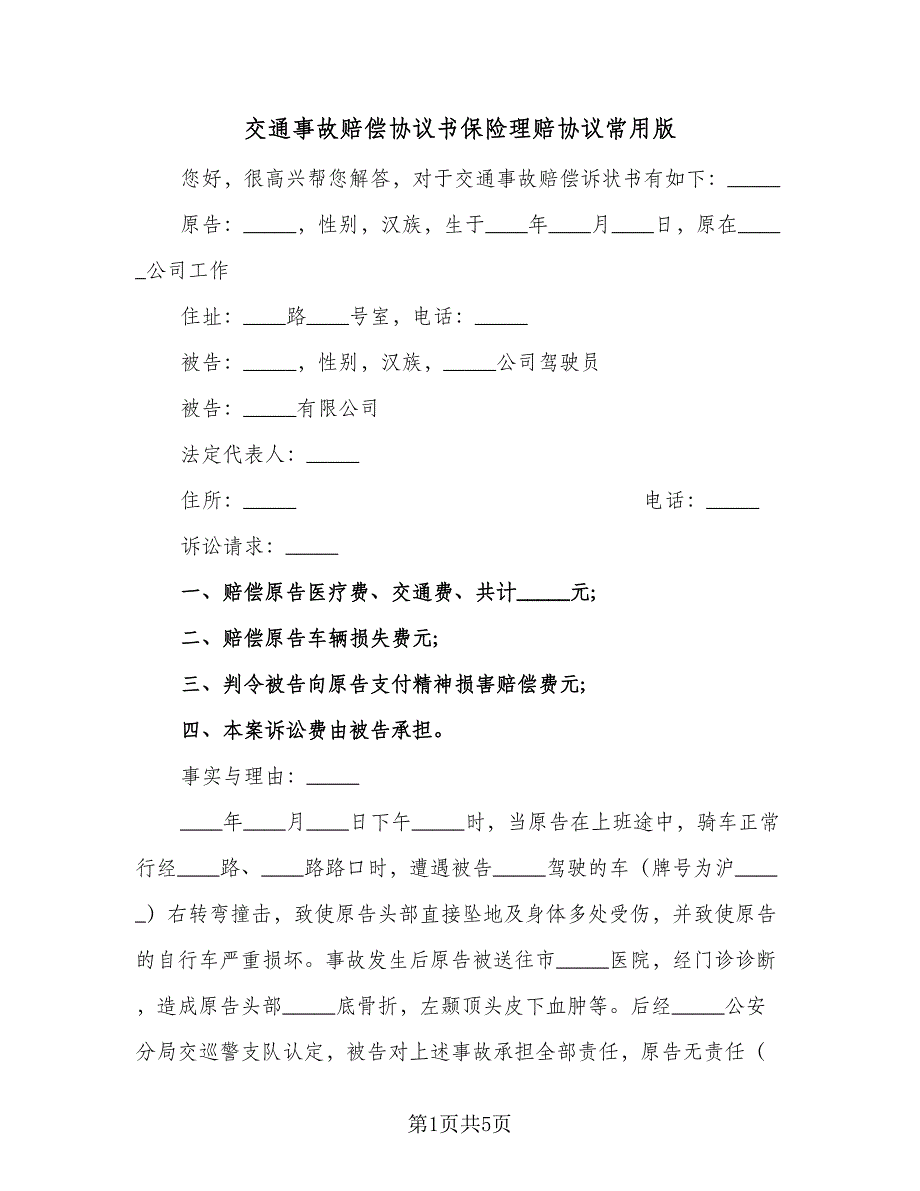 交通事故赔偿协议书保险理赔协议常用版
您好，很高兴帮您解答，对于交通事故赔偿诉状书有如下：_____
原告：_____，性别，汉族，生于____年____月____日，原在____
_公司工作
住址：____路____号室，电话：_____
被告：_____，性别，汉族，_____公司驾驶员
被告：_____有限公司
法定代表人：_____
住所：_____ 电话：_____
诉讼请求：_____
一、赔偿原告医疗费、交通费、共计_____元;
二、赔偿原告车辆损失费元;
三、判令被告向原告支付精神损害赔偿费元;
四、本案诉讼费由被告承担。
事实与理由：_____
____年____月____日下午_____时，当原告在上班途中，骑车正常
行经____路、____路路口时，遭遇被告_____驾驶的车（牌号为沪____
_）右转弯撞击，致使原告头部直接坠地及身体多处受伤，并致使原告
的自行车严重损坏。事故发生后原告被送往市_____医院，经门诊诊断
，造成原告头部_____底骨折，左颞顶头皮下血肿等。后经_____公安
分局交巡警支队认定，被告对上述事故承担全部责任，原告无责任（
第1页共5页